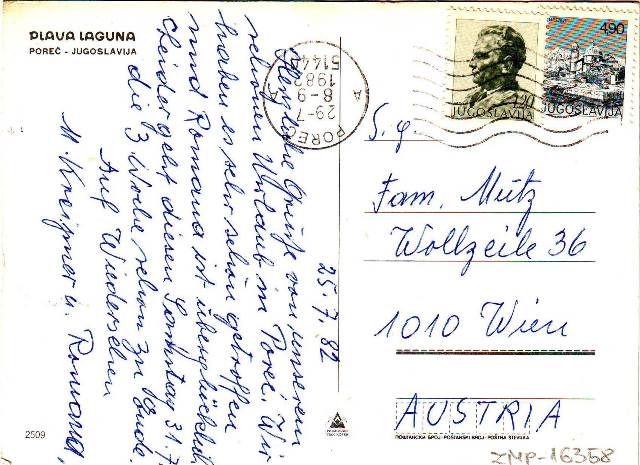 PLAVA LAGUNA
POREČ - JUGOSLAVIJA
25.7.82
Herzliche Grüße von unserem
schönen Urlaub in Poreč. Wir
haben es sehr schön getroffen
und Romana ist überglücklich
Leider geht diesen Samstag 31.7.
die 3 Woche schon zu Ende.
Auf Wiedersehen
M. Kreipner u. Romana,
2509
POREČ
29-7
8-9
1982
51440
A A
1,20
JUGOSLAVIJA
4,90
JUGOSLAVIJA
S. g.
Fam. Mütz
Wollzeile 36
1010 Wien
AUSTRIA
ПОШТАНСКИ БРОЈ · POŠTANSKI BROJ · POŠTNA ŠTEVILKA
ZMP-16358